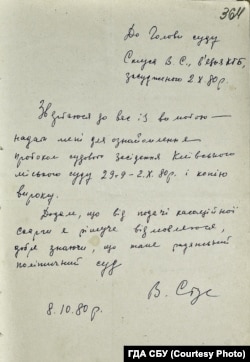 364
До Голови суду
Стуса В. С., в'язня КГБ,
засудженого 2.X.80р.
Звертаюся до Вас із вимогою —
надати мені для ознайомлення
протокол судового засідання Київського
міського суду 29.9 - 2.X.80р. і копію
вироку.
Додам, що від подачі касаційної
скарги я рішуче відмовляюся,
добре знаючи, що таке радянський
політичний суд
В. Стус
8.10.80р.
ГДА СБУ (Courtesy Photo)